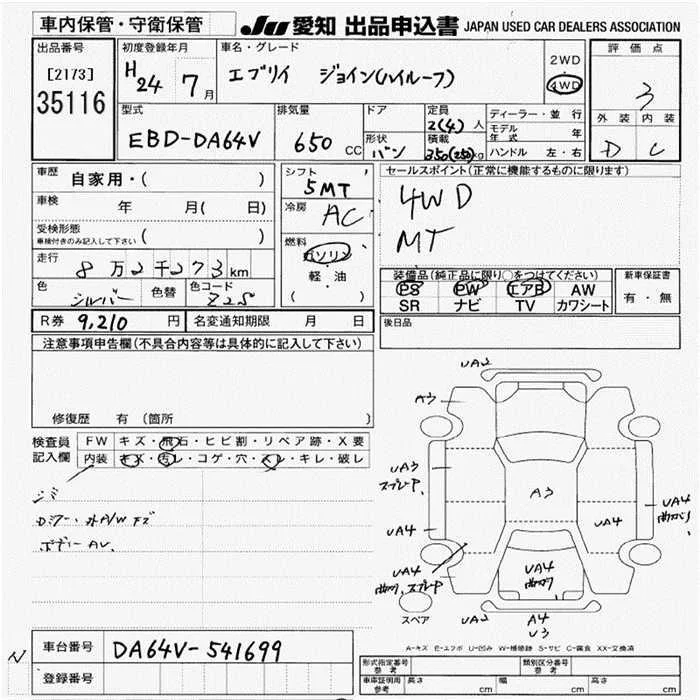 車内保管・守衛保管
JU 愛知 出品申込書 JAPAN USED CAR DEALERS ASSOCIATION
出品番号
[2173]
35116
初度登録年月
H24 7月
車名・グレード
エブリイ ジョイン(ハイルーフ)
2WD
4WD
評価点
3
外装 内装
D C
型式
EBD-DA64V
排気量
650 CC
ドア
形状
バン
定員
2(4)人
積載
350(250)kg
ディーラー・並行
モデル年式 年
ハンドル 左・右
車歴
自家用・( )
車検 年 月( 日)
受検形態
車検付きのみ記入して下さい ( )
走行 8万2千273km
色 シルバー 色替 色コード Z2S
シフト
5MT
冷房
AC
燃料
ガソリン
軽・油
( )
セールスポイント(正常に機能するものに限ります)
4WD
MT
装備品(純正品に限り○をつけてください)
PS PW エアB AW
SR ナビ TV カワシート
新車保証書
有・無
R券 9,210 円 名変通知期限 月 日
後日品
注意事項申告欄(不具合内容等は具体的に記入して下さい)
修復歴 有 (箇所 )
検査員記入欄
FW キズ・飛石・ヒビ割・リペア跡・X要
内装 キズ・汚レ・コゲ・穴・スレ・キレ・破レ
シミ
ボデーAU.
UA2
A3
UA3
スプレーP.
A3
UA4
UA4
UA4
曲ガリ
UA4
曲ガリ、スプレーP
UA4
曲ガリ
スペア
UA2
A4
U3
A-キズ E-エクボ U-凹み W-補修跡 S-サビ C-腐食 XX-交換済
N
車台番号 DA64V-541699
登録番号
形式指定番号 参考
類別区分番号 参考
車庫証明用 参考 長さ cm 幅 cm 高さ cm